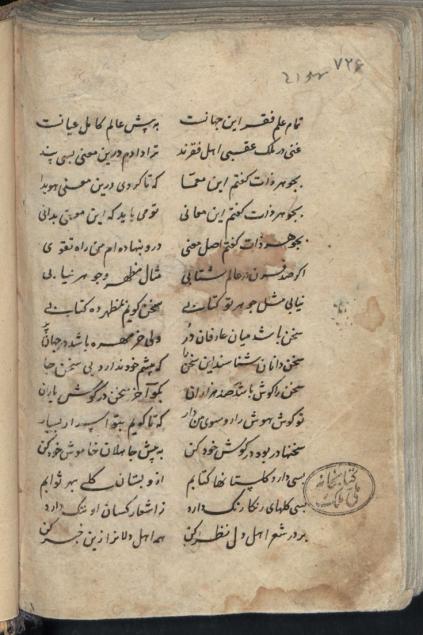 ۷۲۶
تمام علم فقر این جهانست به پیش عالم کامل عیانست
غنی در ملک عقبی اهل فقرند ترا دادم درین معنی بسی پند
بجوهر ذات گفتم این معما که تا گردی درین معنی هویدا
بجوهر ذات گفتم این معانی تو می باید که این معنی بدانی
بجوهر ذات گفتم اصل معنی درو بنهاده ام من راه تقوی
اگر صد قرن در عالم شتابی مثال مظهر و جوهر نیابی
نیابی مثل جوهر تو کتابی سخن گویم ز مظهر ده کتابی
سخن باشد میان عارفان در ولی خر مهره باشد در جهان پر
سخن دانان شناسند این سخن را که پیشم خود ندارد بی سخن جا
سخن را گوش باشد صد هزاران بگو آخر سخن در گوش یاران
تو گوش هوش را و سوی من دار که تا گویم بتو اسرار بسیار
سخنها در بود در گوش خود کن به پیش جاهلان خاموش خود کن
بسی دارد گلستانها کتابم ازو بستان گلی بهر ثوابم
بسی گلهای رنگارنگ دارد ز اشعار کسان او ننگ دارد
برو در شعر اهل دل نظر کن همه اهل دلانرا زین خبر کن
کتابخانه
ملی ملک